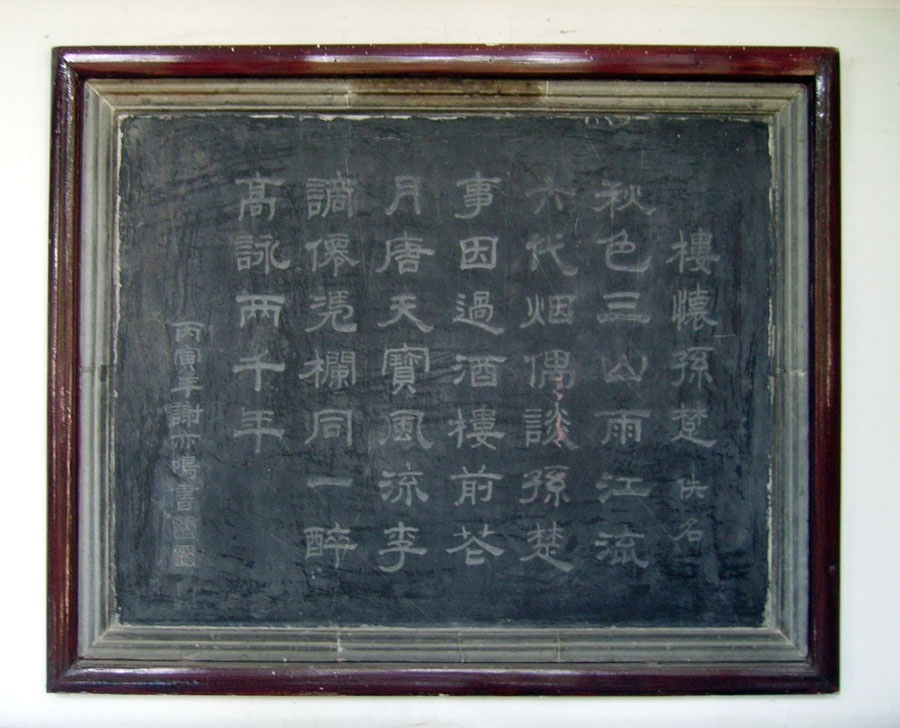 樓懷孫楚 佚名
秋色三山雨江流
六代烟偶談孫楚
事因過酒樓前花
月唐天寶風流李
謫僊凴欄同一醉
高詠兩千年
丙寅年謝亦鳴書